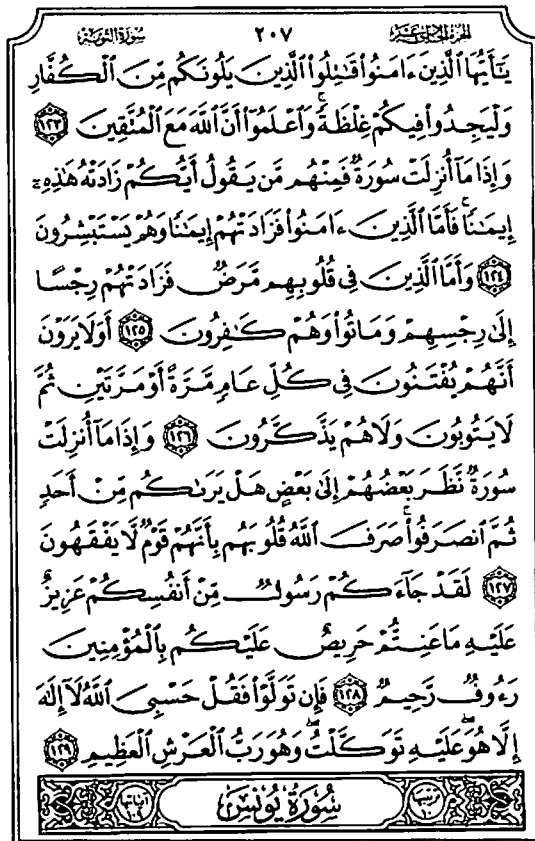 الجزء الحادي عشر ٢٠٧ سورة التوبة
يَٰٓأَيُّهَا ٱلَّذِينَ ءَامَنُوا۟ قَٰتِلُوا۟ ٱلَّذِينَ يَلُونَكُم مِّنَ ٱلْكُفَّارِ
وَلْيَجِدُوا۟ فِيكُمْ غِلْظَةً ۚ وَٱعْلَمُوٓا۟ أَنَّ ٱللَّهَ مَعَ ٱلْمُتَّقِينَ ١٢٣
وَإِذَا مَآ أُنزِلَتْ سُورَةٌ فَمِنْهُم مَّن يَقُولُ أَيُّكُمْ زَادَتْهُ هَٰذِهِۦٓ
إِيمَٰنًا ۚ فَأَمَّا ٱلَّذِينَ ءَامَنُوا۟ فَزَادَتْهُمْ إِيمَٰنًا وَهُمْ يَسْتَبْشِرُونَ
١٢٤ وَأَمَّا ٱلَّذِينَ فِى قُلُوبِهِم مَّرَضٌ فَزَادَتْهُمْ رِجْسًا
إِلَىٰ رِجْسِهِمْ وَمَاتُوا۟ وَهُمْ كَٰفِرُونَ ١٢٥ أَوَلَا يَرَوْنَ
أَنَّهُمْ يُفْتَنُونَ فِى كُلِّ عَامٍ مَّرَّةً أَوْ مَرَّتَيْنِ ثُمَّ
لَا يَتُوبُونَ وَلَا هُمْ يَذَّكَّرُونَ ١٢٦ وَإِذَا مَآ أُنزِلَتْ
سُورَةٌ نَّظَرَ بَعْضُهُمْ إِلَىٰ بَعْضٍ هَلْ يَرَىٰكُم مِّنْ أَحَدٍ
ثُمَّ ٱنصَرَفُوا۟ ۚ صَرَفَ ٱللَّهُ قُلُوبَهُم بِأَنَّهُمْ قَوْمٌ لَّا يَفْقَهُونَ
١٢٧ لَقَدْ جَآءَكُمْ رَسُولٌ مِّنْ أَنفُسِكُمْ عَزِيزٌ
عَلَيْهِ مَا عَنِتُّمْ حَرِيصٌ عَلَيْكُم بِٱلْمُؤْمِنِينَ
رَءُوفٌ رَّحِيمٌ ١٢٨ فَإِن تَوَلَّوْا۟ فَقُلْ حَسْبِىَ ٱللَّهُ لَآ إِلَٰهَ
إِلَّا هُوَ ۖ عَلَيْهِ تَوَكَّلْتُ ۖ وَهُوَ رَبُّ ٱلْعَرْشِ ٱلْعَظِيمِ ١٢٩
ترتيبها ١٠ سُورَةُ يُونُسَ آياتها ١٠٩